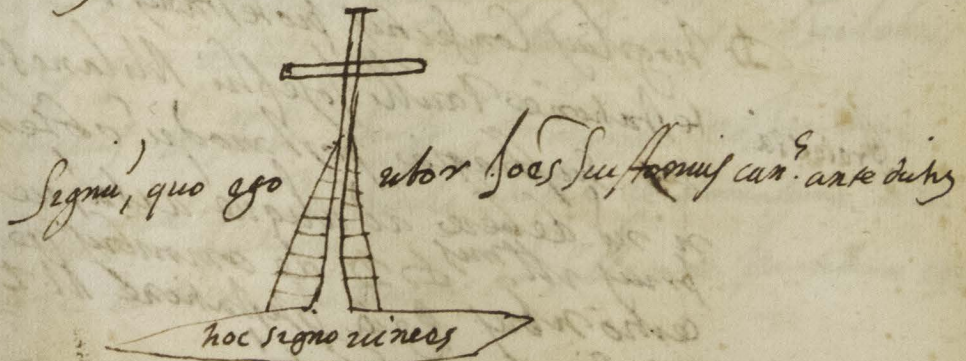 Signū, quo ego utor Joēs Suffonius can.ᶜ ante dictus
hoc signo vinces